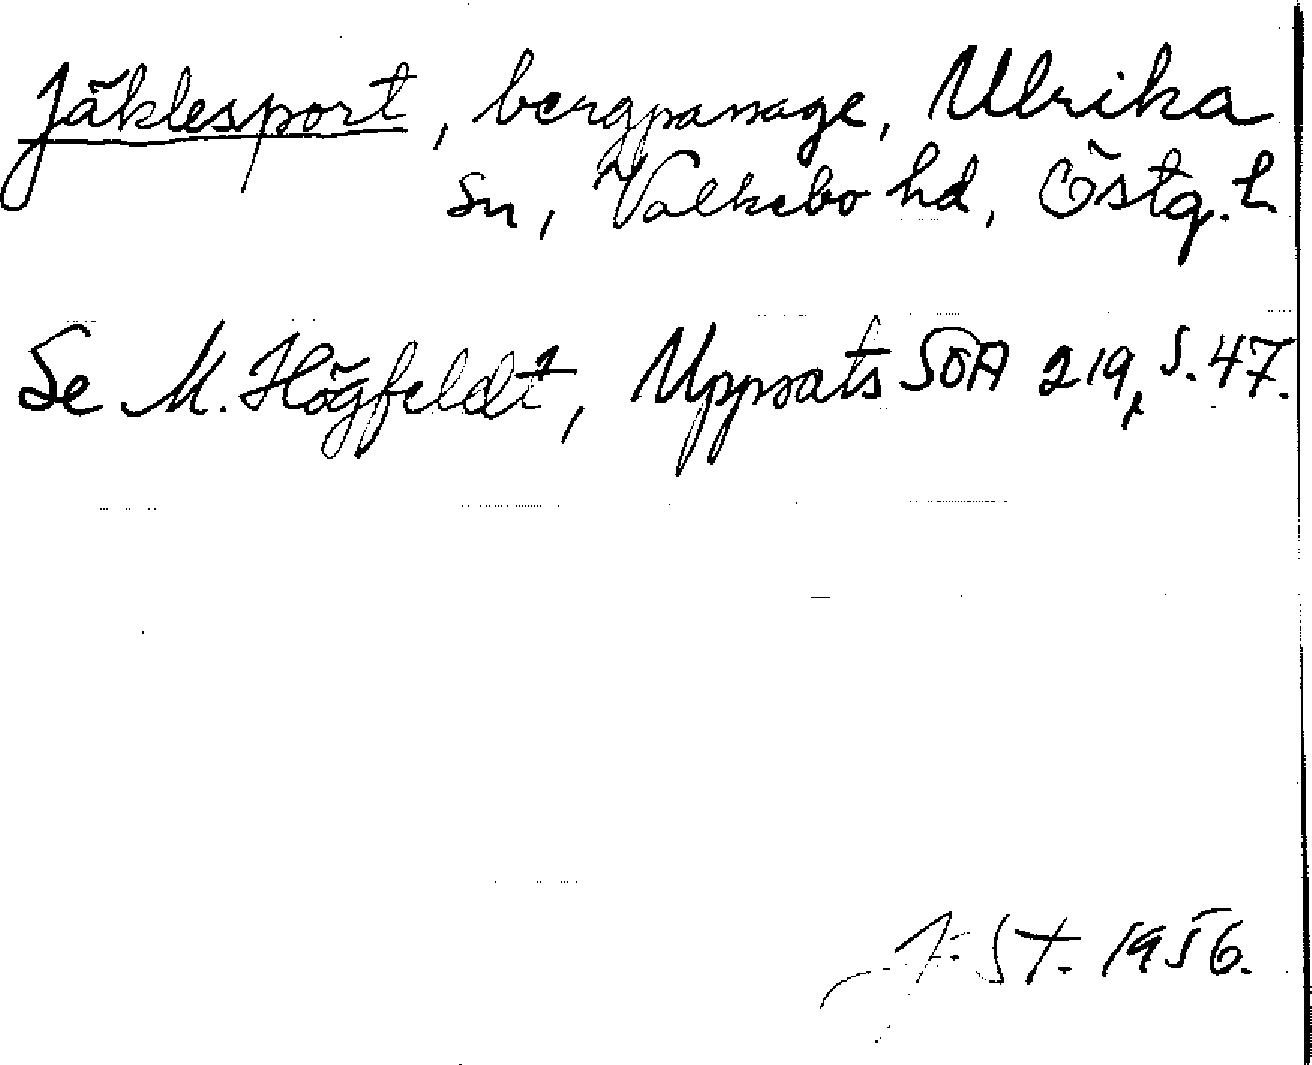 Jäklesport, bergpassage, Ulrika
sn, Valkebo hd, Östg. l.
Se M. Högfeldt, Uppsats SOA 219, s. 47.
J. St. 1956.